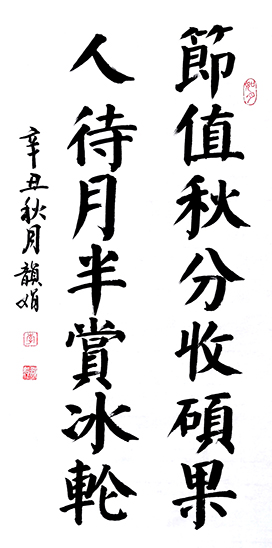 節值秋分收碩果
人待月半賞冰輪
辛丑秋月韻娟